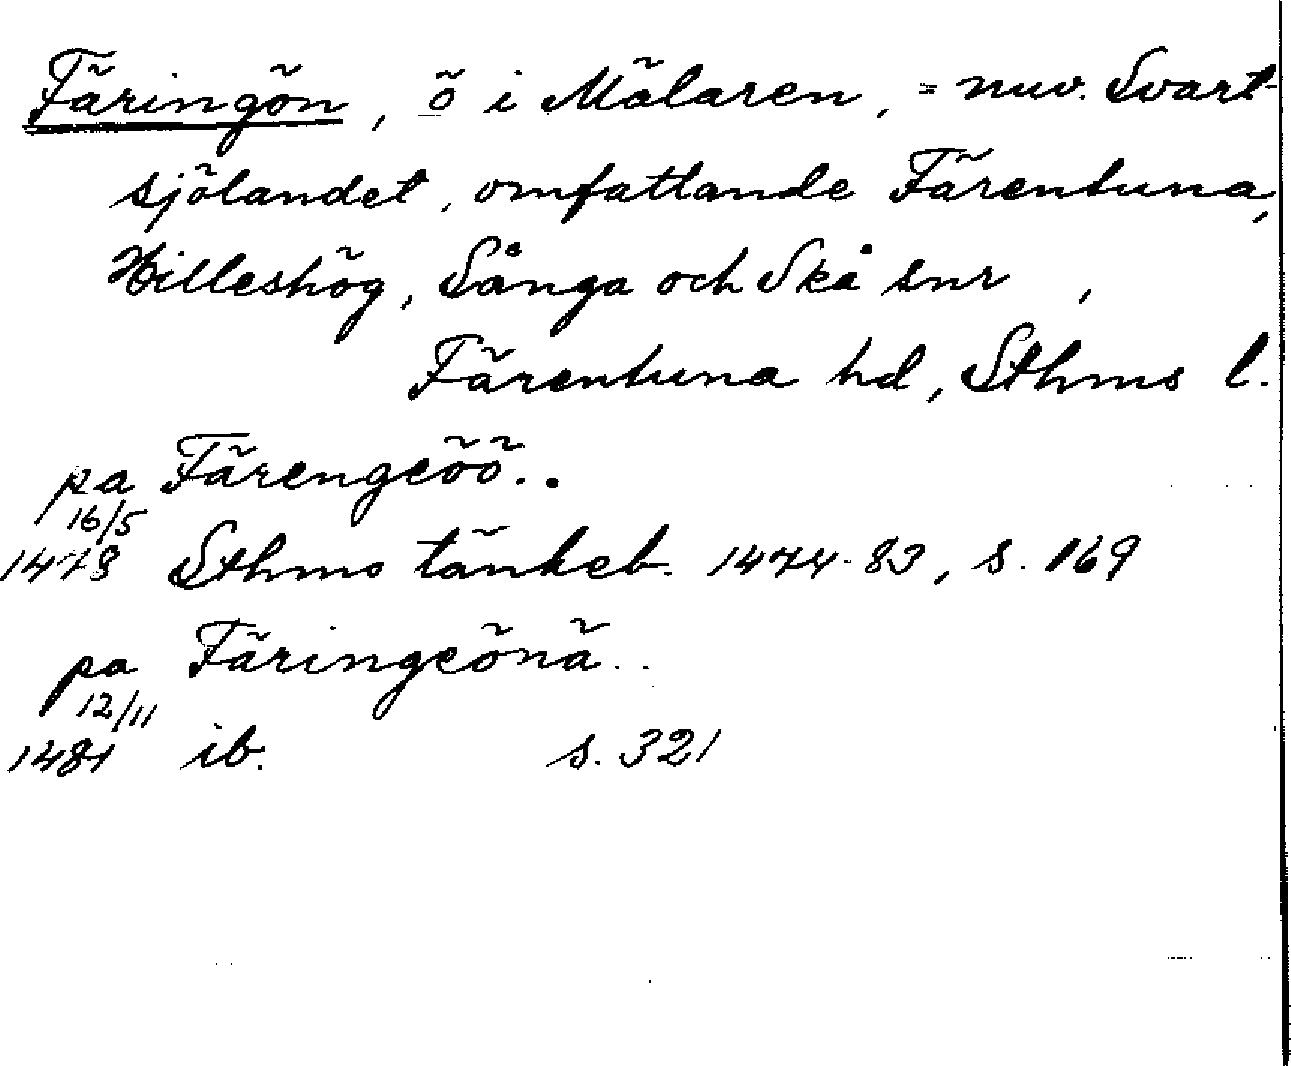 Färingön, ö i Mälaren, = nuv. Svart-
sjölandet, omfattande Färentuna,
Hilleshög, Sånga och Skå snr ,
Färentuna hd, Sthms l.
pa Färengeöö..
16/5
1478 Sthms tänkeb. 1474-83, s. 169
pa Färingeönä..
12/11
1481 ib. s. 321